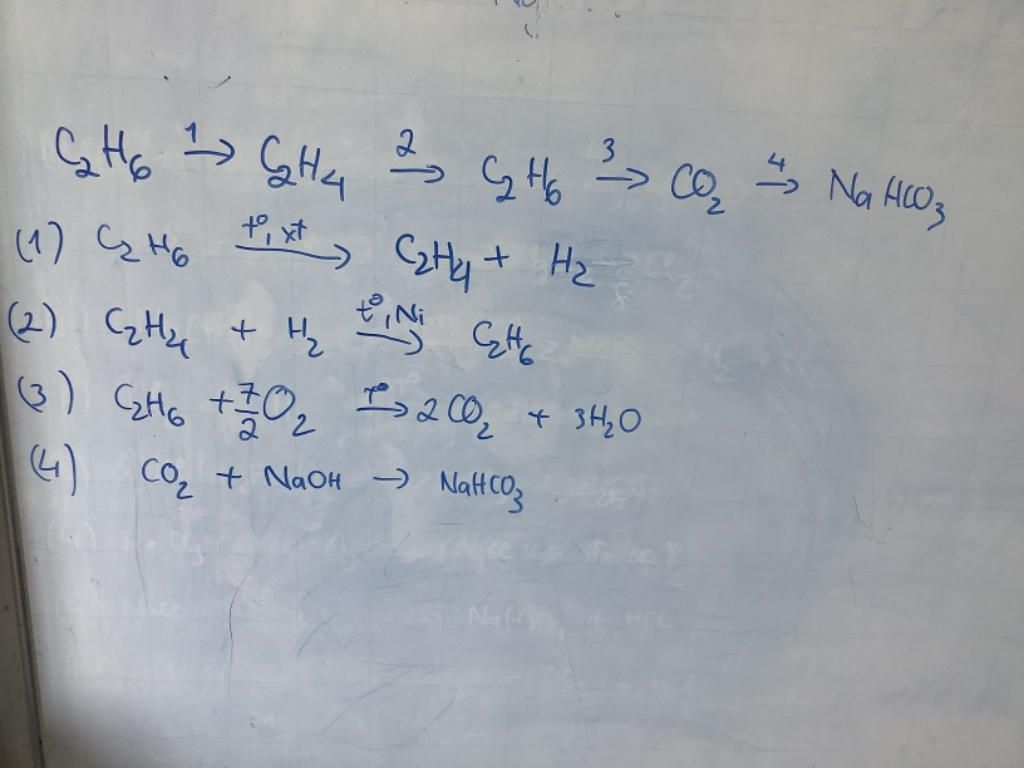 C₂H₆ →¹ C₂H₄ →² C₂H₆ →³ CO₂ →⁴ NaHCO₃
(1) C₂H₆ →(t°, xt) C₂H₄ + H₂
(2) C₂H₄ + H₂ →(t°, Ni) C₂H₆
(3) C₂H₆ + 7/2 O₂ →(t°) 2CO₂ + 3H₂O
(4) CO₂ + NaOH → NaHCO₃